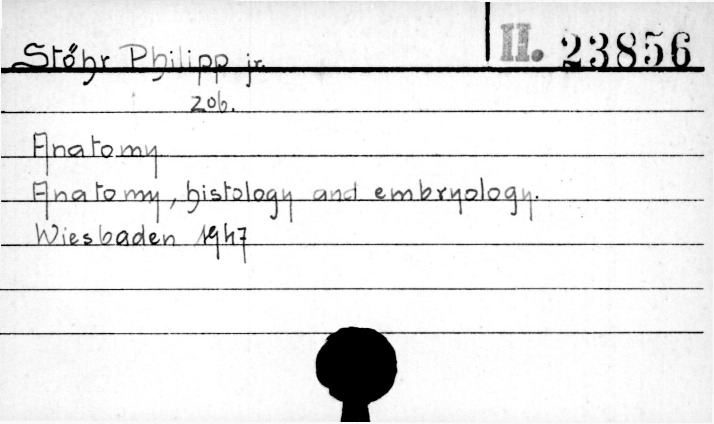 Stőhr Philipp jr. II. 23856
206.
Anatomy
Anatomy, histology and embryology.
Wiesbaden 1947